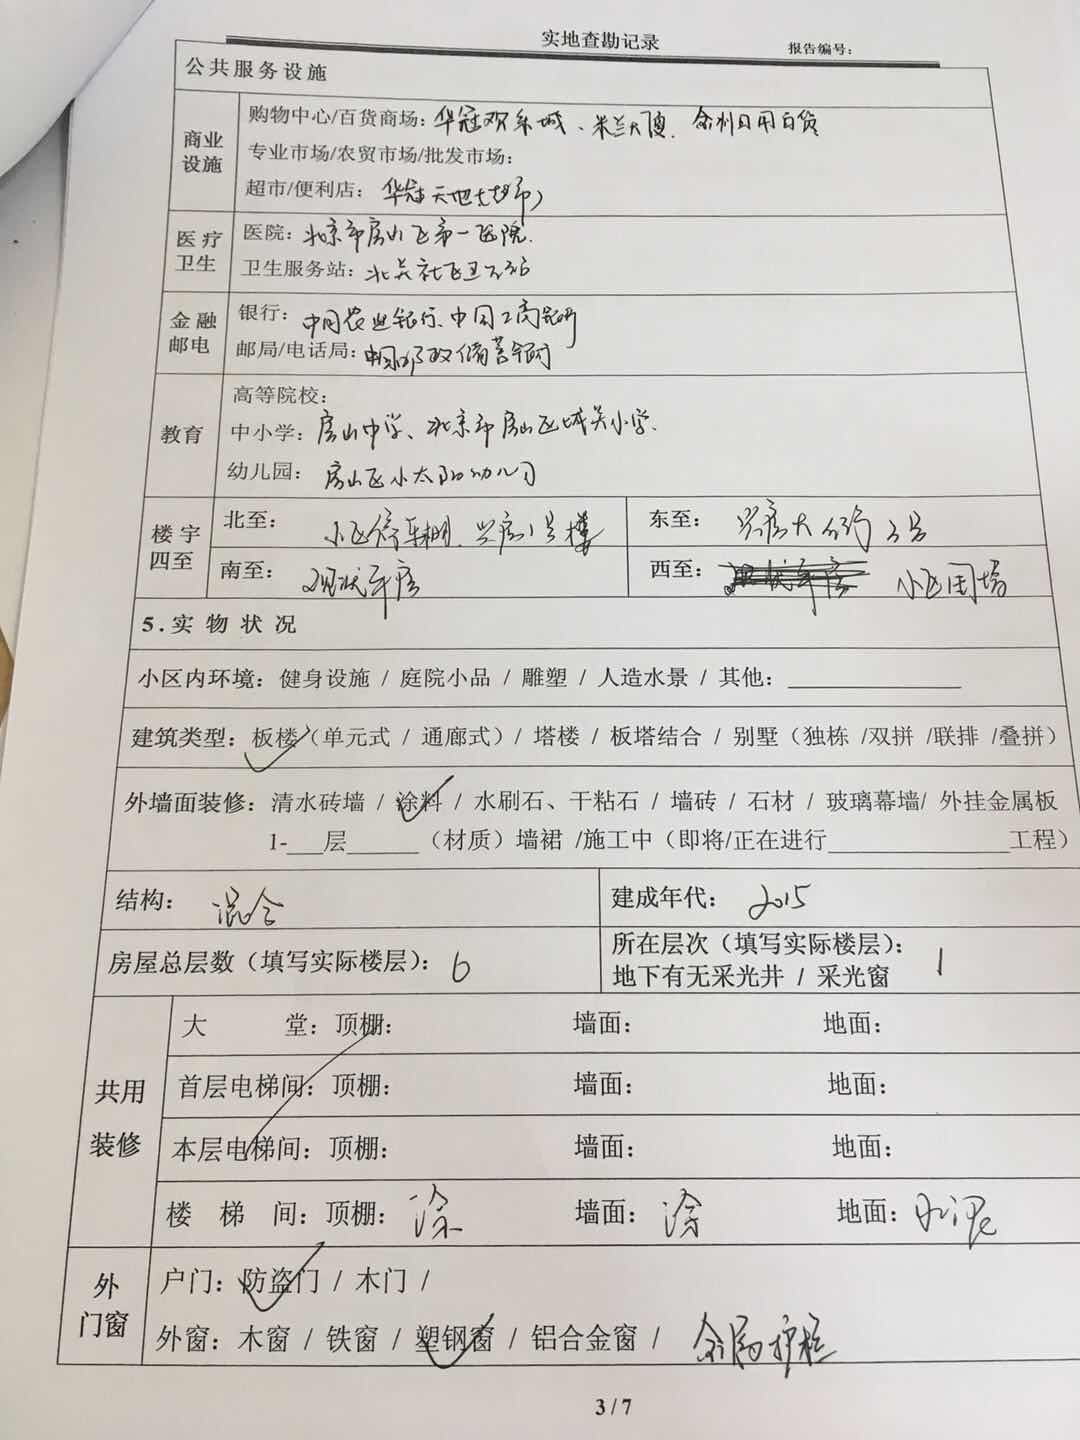 实地查勘记录
报告编号:
公共服务设施
商业设施
购物中心/百货商场: 华冠欢乐城、米兰大厦、金利日用百货
专业市场/农贸市场/批发市场:
超市/便利店: 华冠天地超市
医疗卫生
医院: 北京市房山区第一医院.
卫生服务站: 北关社区卫
金融邮电
银行: 中国农业银行、中国工商银行
邮局/电话局: 中国邮政储蓄银行
教育
高等院校:
中小学: 房山中学、北京市房山区城关小学.
幼儿园: 房山区小太阳幼儿园
楼宇四至
北至: 小区停车棚、兴房1号楼
东至: 兴房大 3号
南至: 现状平房
西至: 小区围墙
5.实物状况
小区内环境: 健身设施 / 庭院小品 / 雕塑 / 人造水景 / 其他:
建筑类型: 板楼✓(单元式 / 通廊式)/ 塔楼 / 板塔结合 / 别墅(独栋 /双拼 /联排 /叠拼)
外墙面装修: 清水砖墙 / 涂料✓ / 水刷石、干粘石 / 墙砖 / 石材 / 玻璃幕墙/ 外挂金属板
1-___层______(材质)墙裙 /施工中(即将/正在进行_______________工程)
结构: 混合
建成年代: 2015
房屋总层数(填写实际楼层): 6
所在层次(填写实际楼层): 1
地下有无采光井 / 采光窗
共用装修
大 堂: 顶棚: 墙面: 地面:
首层电梯间: 顶棚: 墙面: 地面:
本层电梯间: 顶棚: 墙面: 地面:
楼 梯 间: 顶棚: 涂 墙面: 涂 地面: 水泥
外门窗
户门: 防盗门✓ / 木门 /
外窗: 木窗 / 铁窗 / 塑钢窗✓ / 铝合金窗 / 金属护栏
3 / 7